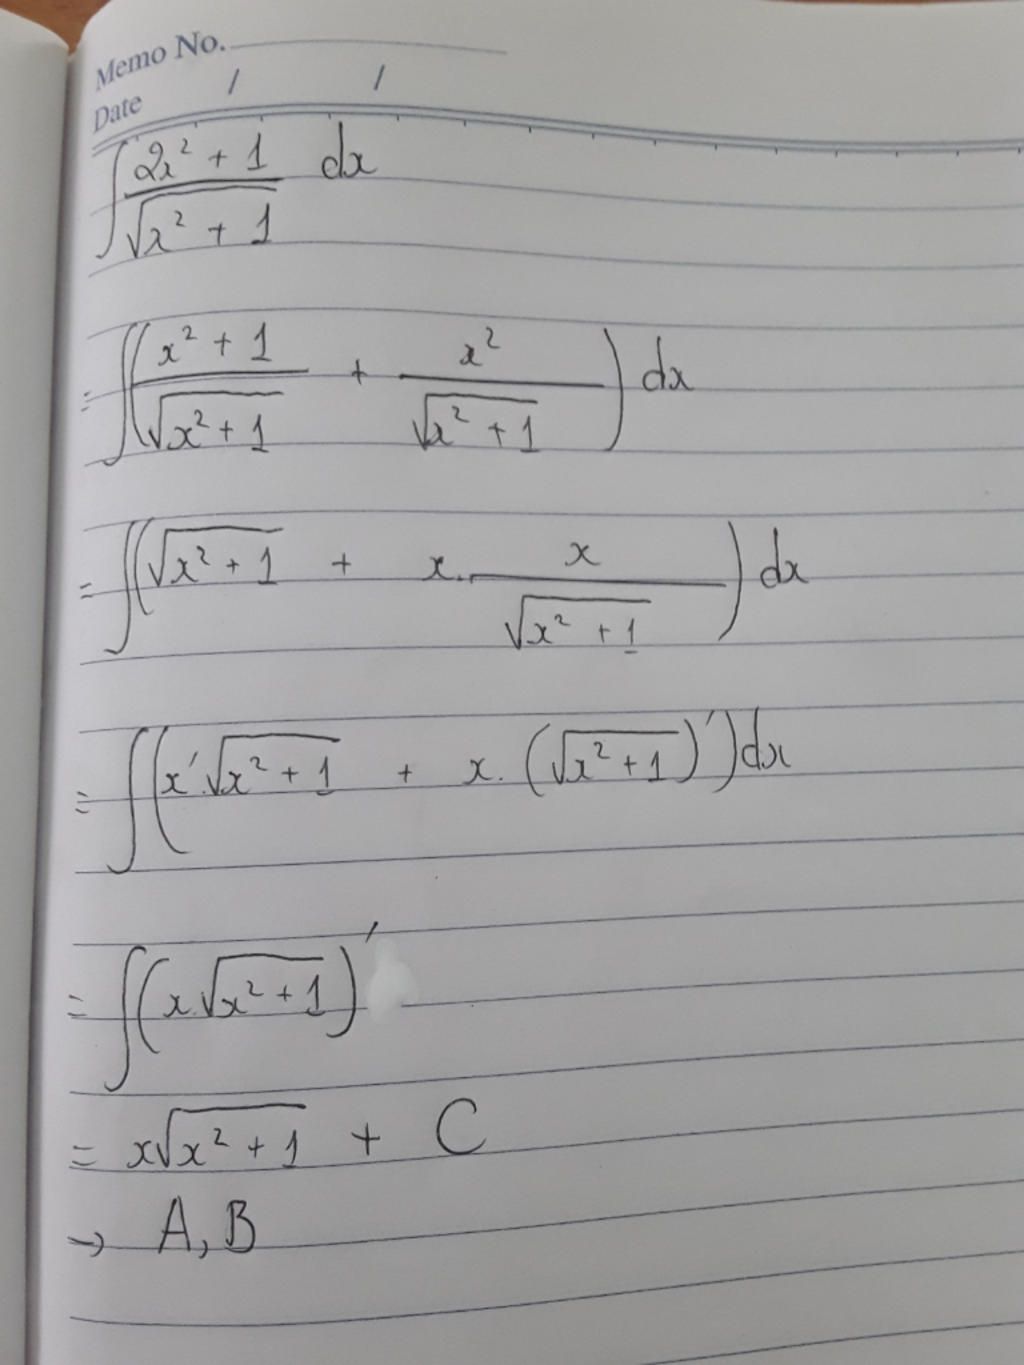 Memo No.
Date / /
∫ (2x² + 1)/√(x² + 1) dx
= ∫((x² + 1)/√(x² + 1) + x²/√(x² + 1)) dx
= ∫(√(x² + 1) + x. x/√(x² + 1)) dx
= ∫(x'.√(x² + 1) + x. (√(x² + 1))')dx
= ∫(x.√(x² + 1))'
= x√(x² + 1) + C
→ A, B